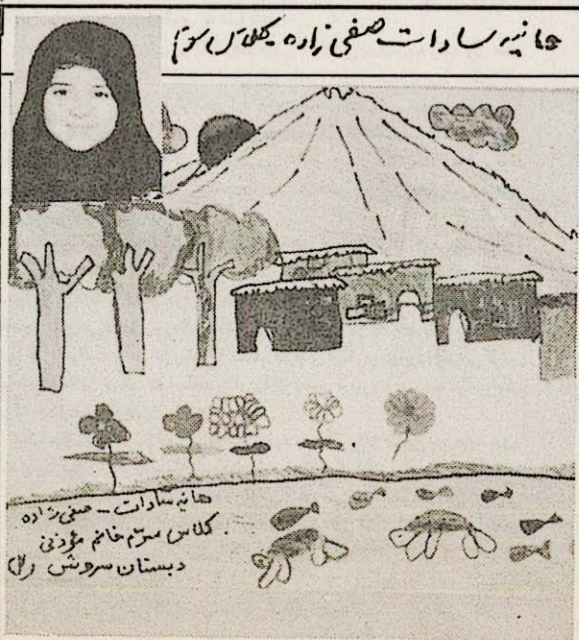 هانیه سادات صفی زاده کلاس سوم
هانیه سادات - صفی زاده
کلاس سوم خانم مؤذنی
دبستان سروش